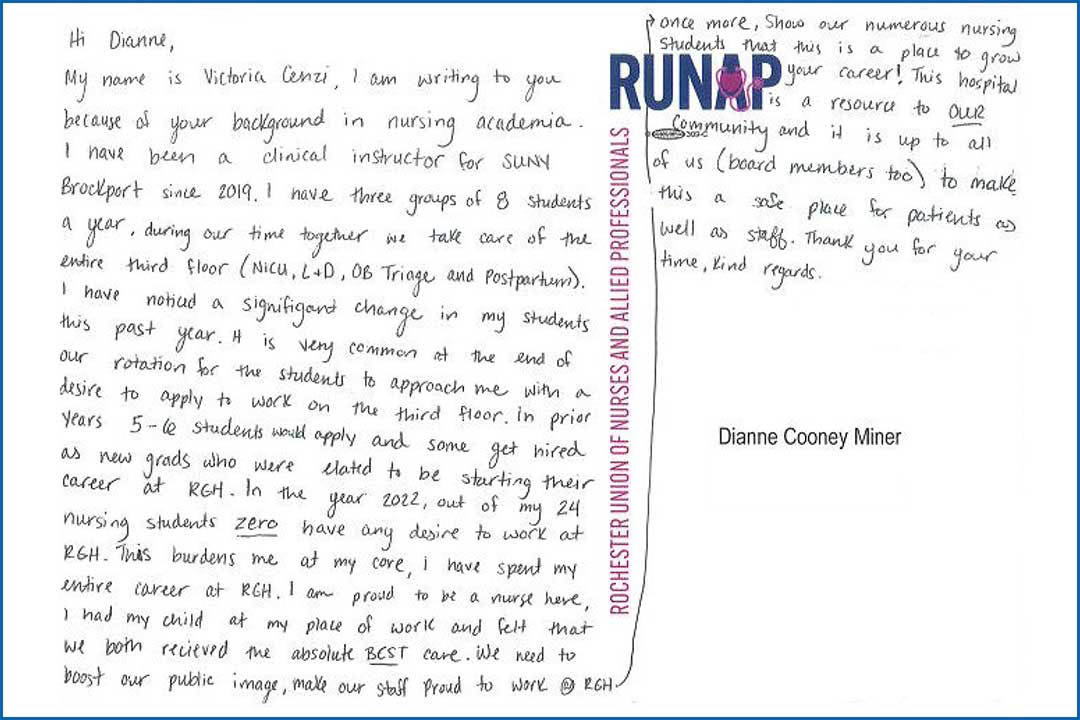 Hi Dianne,
My name is Victoria Cenzi, I am writing to you
because of your background in nursing academia.
I have been a clinical instructor for SUNY
Brockport since 2019. I have three groups of 8 students
a year, during our time together we take care of the
entire third floor (NICU, L+D, OB Triage and Postpartum).
I have noticed a signifigant change in my students
this past year. It is very common at the end of
our rotation for the students to approach me with a
desire to apply to work on the third floor. In prior
years 5-6 students would apply and some get hired
as new grads who were elated to be starting their
career at RGH. In the year 2022, out of my 24
nursing students zero have any desire to work at
RGH. This burdens me at my core, I have spent my
entire career at RGH. I am proud to be a nurse here,
I had my child at my place of work and felt that
we both recieved the absolute BEST care. We need to
boost our public image, make our staff proud to work @ RGH
once more, Show our numerous nursing
students that this is a place to grow
your career! This hospital
is a resource to OUR
Community and it is up to all
of us (board members too) to make
this a safe place for patients as
well as staff. Thank you for your
time, Kind regards.
RUNAP
ROCHESTER UNION OF NURSES AND ALLIED PROFESSIONALS
Dianne Cooney Miner